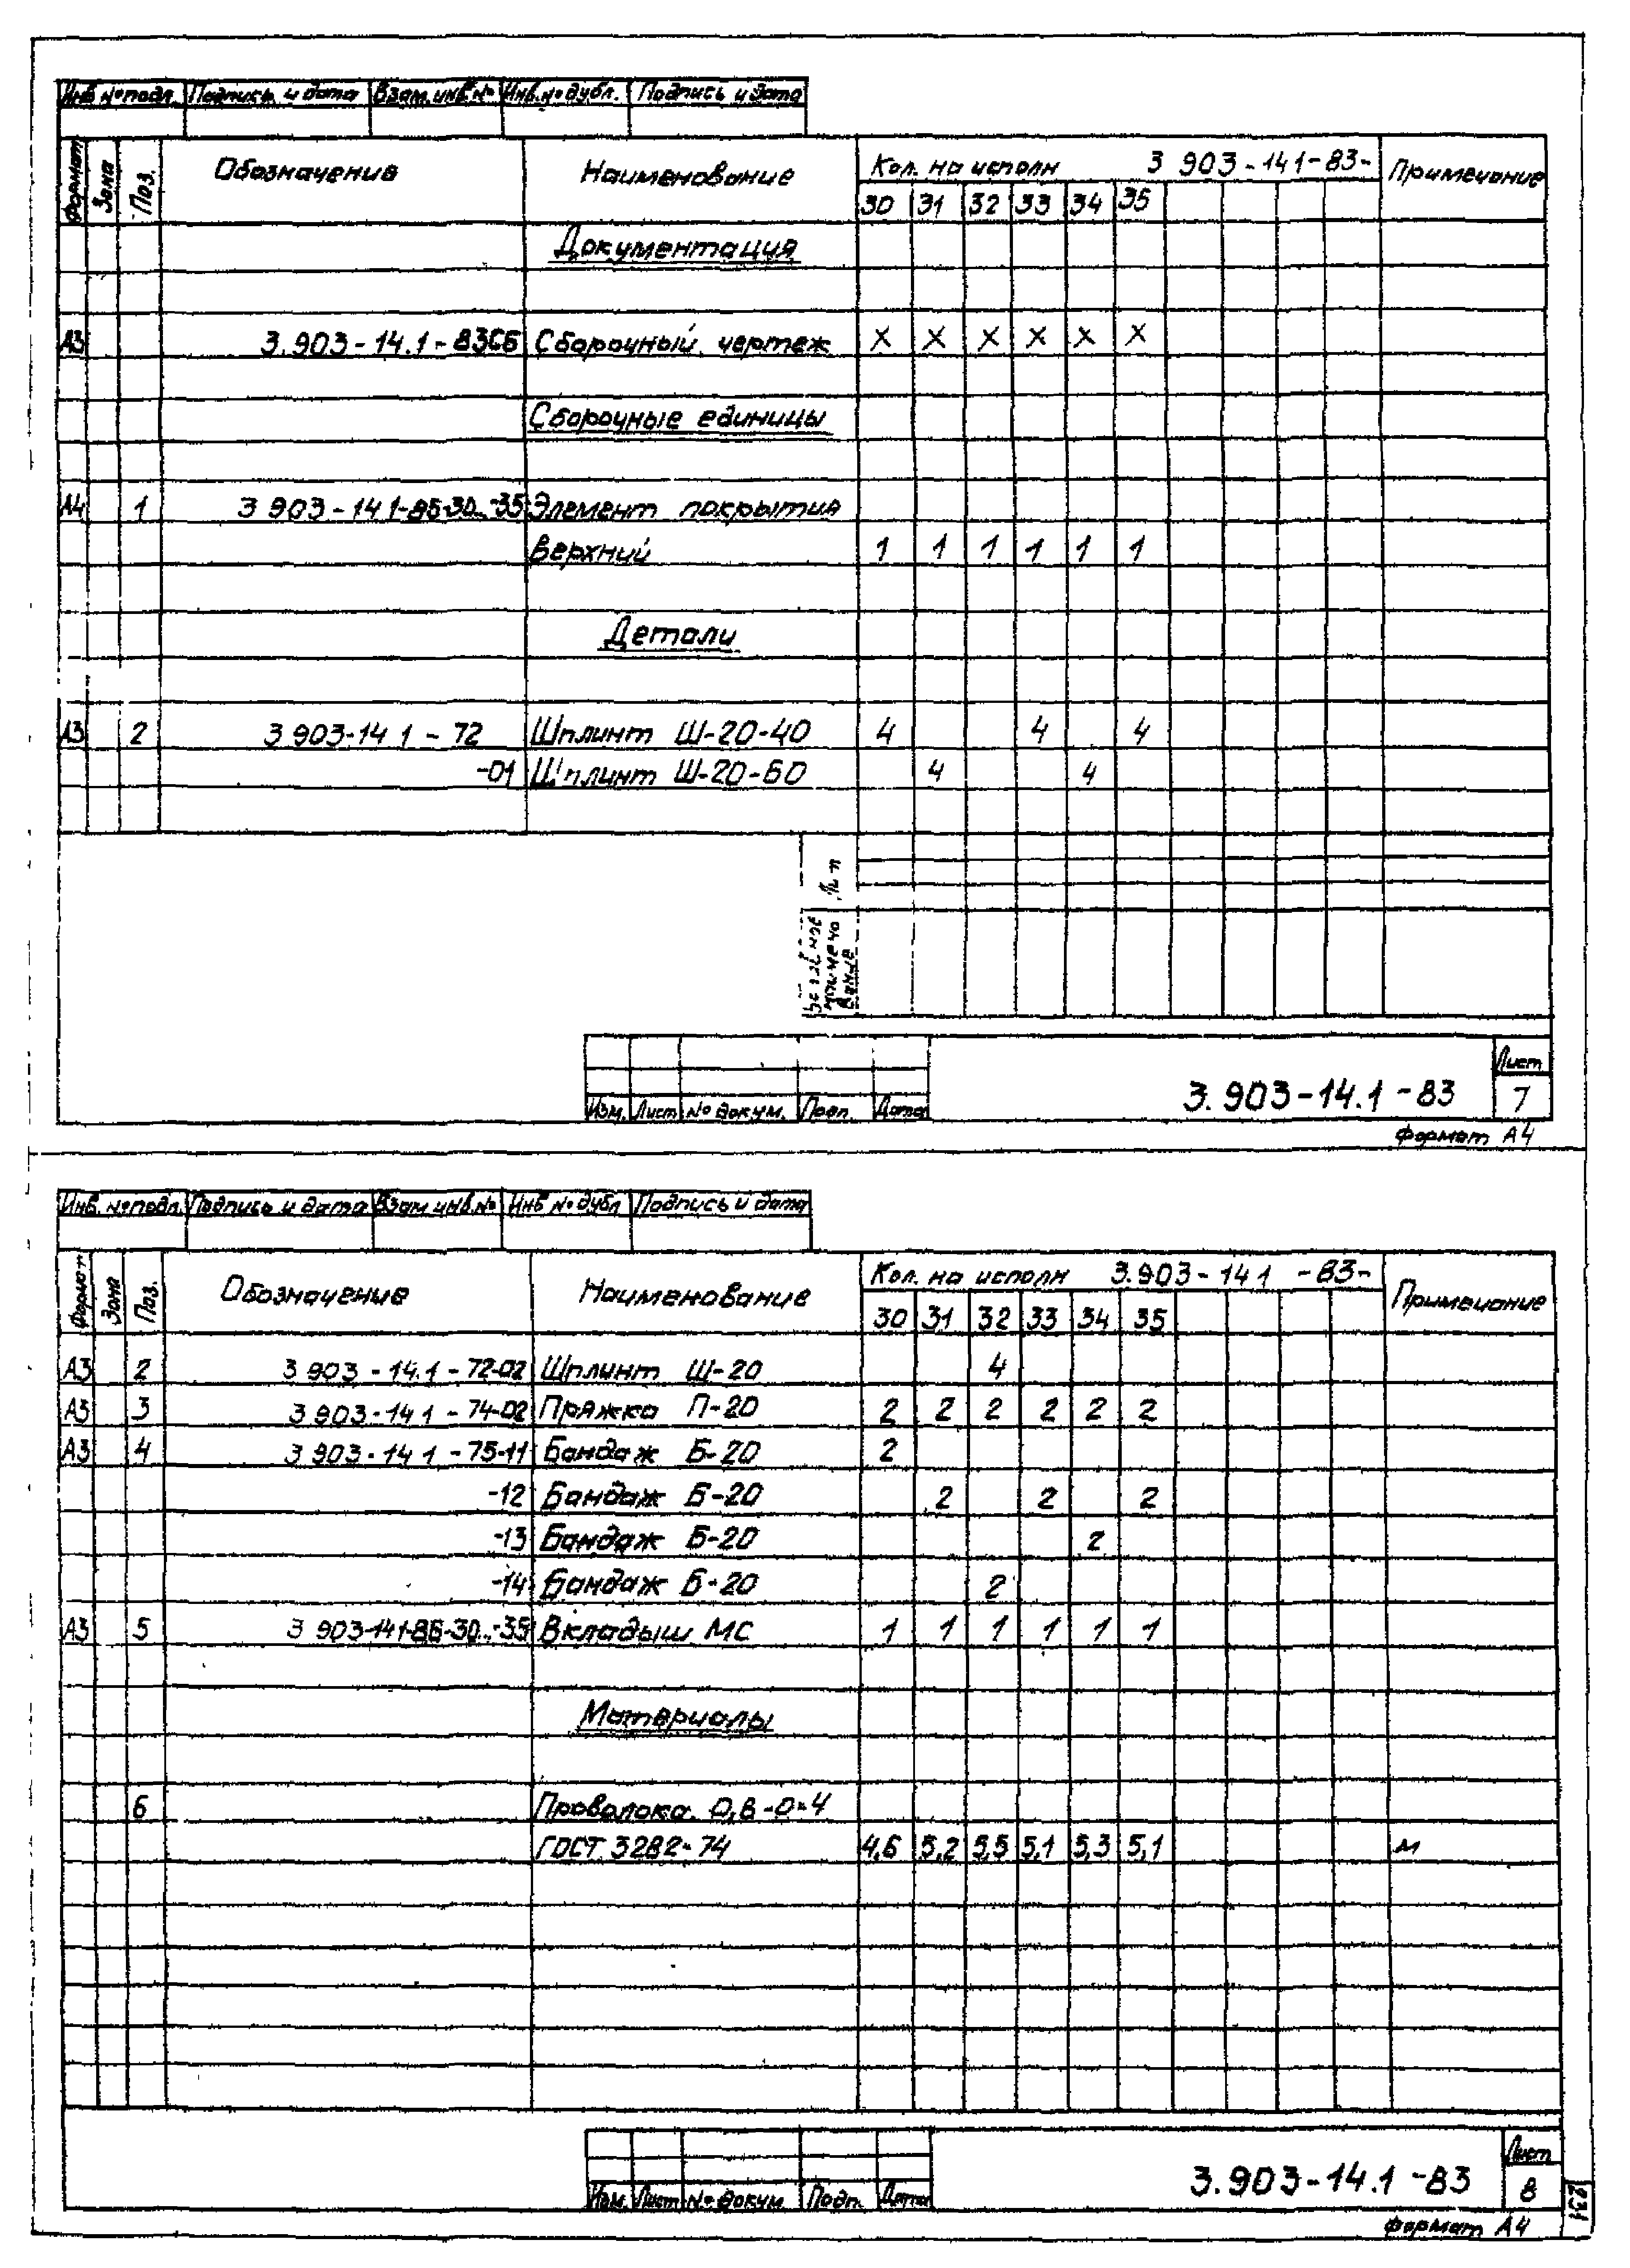 Инв.№подл. Подпись и дата Взам.инв.№ Инв.№дубл. Подпись и дата
Формат Зона Поз. Обозначение Наименование Кол. на исполн 3 903-141-83- Примечание
30 31 32 33 34 35
Документация
А3 3.903-14.1-83СБ Сборочный чертеж X X X X X X
Сборочные единицы
А4 1 3 903-14 1-85-30...-35 Элемент покрытия
верхний 1 1 1 1 1 1
Детали
А3 2 3 903-14 1-72 Шплинт Ш-20-40 4 4 4
-01 Шплинт Ш-20-60 4 4
Изм. Лист № докум. Подп. Дата
3.903-14.1-83
Лист
7
Формат А4
Инв. №подл. Подпись и дата Взам инв.№ Инв № дубл Подпись и дата
Формат Зона Поз. Обозначение Наименование Кол. на исполн 3.903-141-83- Примечание
30 31 32 33 34 35
А3 2 3 903-14.1-72-02 Шплинт Ш-20 4
А3 3 3 903-14 1-74-02 Пряжка П-20 2 2 2 2 2 2
А3 4 3 903-14 1-75-11 Бандаж Б-20 2
-12 Бандаж Б-20 2 2 2
-13 Бандаж Б-20 2
-14 Бандаж Б-20 2
А3 5 3 903-141-86-30...-35 Вкладыш МС 1 1 1 1 1 1
Материалы
6 Проволока 0,8-О-4
ГОСТ 3282-74 4,6 5,2 5,5 5,1 5,3 5,1 м
Изм. Лист № докум. Подп. Дата
3.903-14.1-83
Лист
8
Формат А4